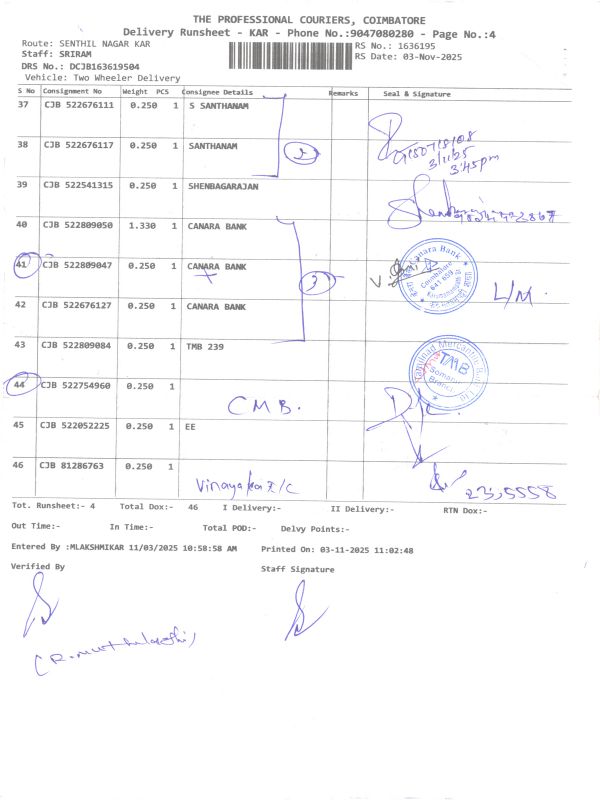 THE PROFESSIONAL COURIERS, COIMBATORE
Delivery Runsheet - KAR - Phone No.:9047080280 - Page No.:4
Route: SENTHIL NAGAR KAR
RS No.: 1636195
Staff: SRIRAM
RS Date: 03-Nov-2025
DRS No.: DCJB163619504
Vehicle: Two Wheeler Delivery
S No Consignment No Weight PCS Consignee Details Remarks Seal & Signature
37 CJB 522676111 0.250 1 S SANTHANAM
38 CJB 522676117 0.250 1 SANTHANAM
2
3/11/25
3:45pm
39 CJB 522541315 0.250 1 SHENBAGARAJAN
40 CJB 522809050 1.330 1 CANARA BANK
41 CJB 522809047 0.250 1 CANARA BANK
3
Canara Bank
Coimbatore
641 659
L/M.
42 CJB 522676127 0.250 1 CANARA BANK
43 CJB 522809084 0.250 1 TMB 239
Tamilnad Mercantile Bank Ltd
TMB
Somanur
Branch
44 CJB 522754960 0.250 1
CMB.
45 CJB 522052225 0.250 1 EE
46 CJB 81286763 0.250 1
Tot. Runsheet:- 4 Total Dox:- 46 I Delivery:- II Delivery:- RTN Dox:-
Out Time:- In Time:- Total POD:- Delvy Points:-
Entered By :MLAKSHMIKAR 11/03/2025 10:58:58 AM Printed On: 03-11-2025 11:02:48
Verified By Staff Signature